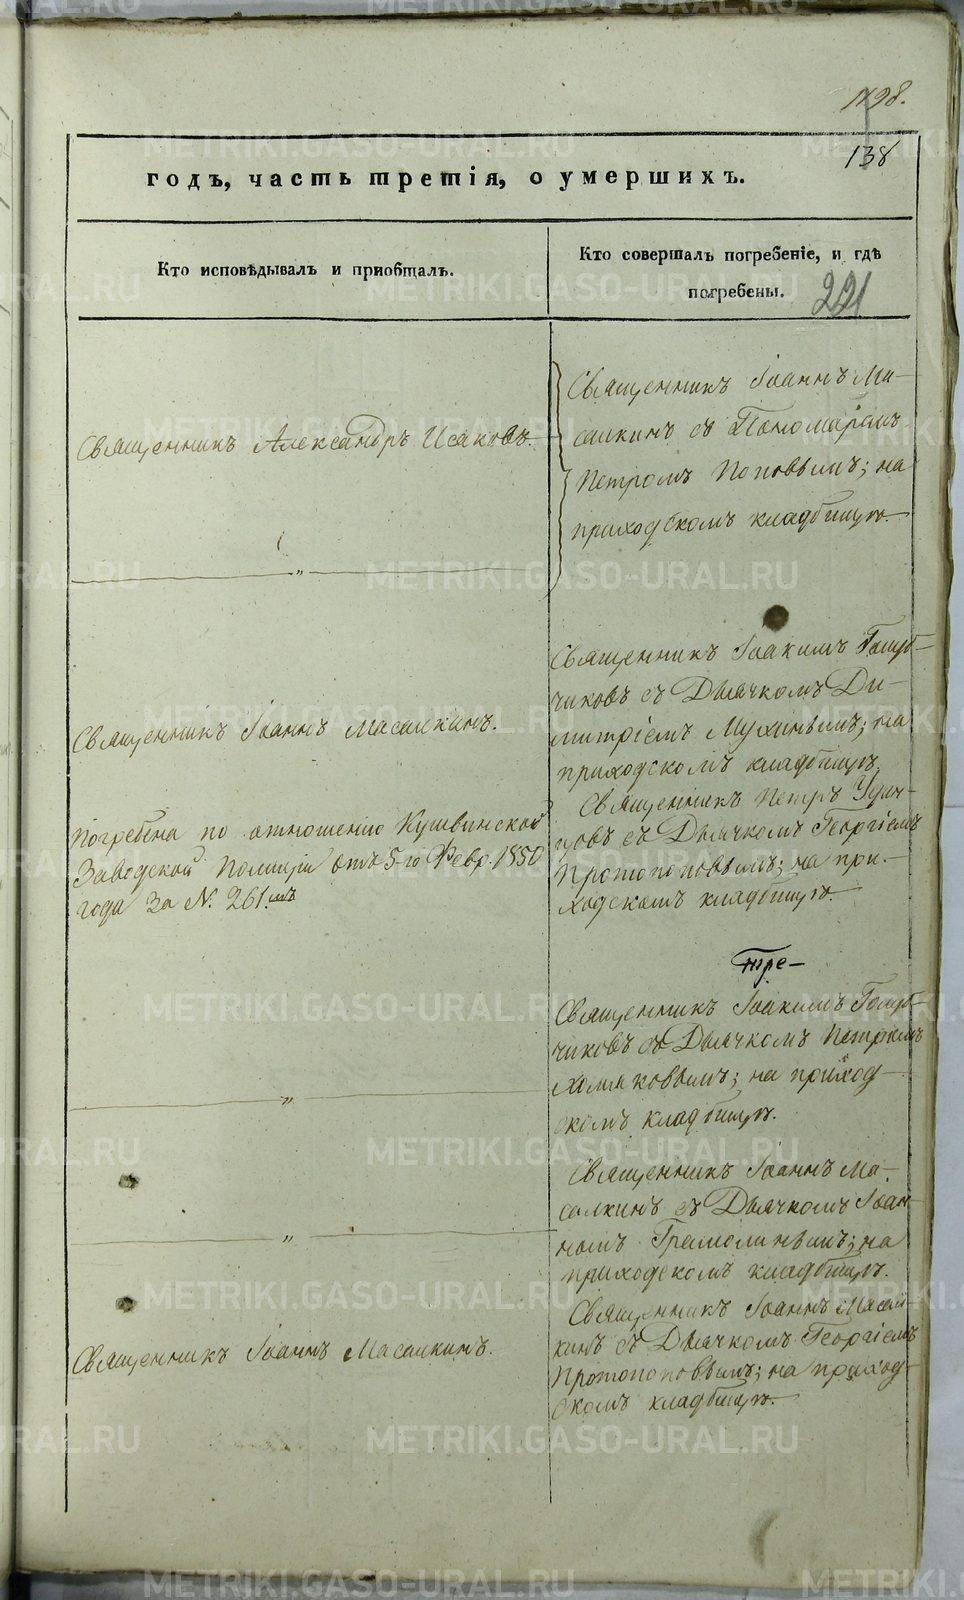 198.
138
годъ, часть третія, о умершихъ.
Кто исповѣдывалъ и приобщалъ.
Кто совершалъ погребеніе, и гдѣ
погребены.
221
Священникъ Александръ Исаковъ.
Священникъ Іоаннъ Ма-
салкинъ съ Пономарёмъ
Петромъ Поповымъ; на
приходскомъ кладбищѣ.
"
Священникъ Іоаннъ Масалкинъ.
Священникъ Іоакимъ Голуб-
чиковъ съ Дьячкомъ Ди-
митріемъ Мухинымъ; на
приходскомъ кладбищѣ.
Погребена по отношенію Кушвинской
Заводской Полиціи отъ 5-го Февр. 1850
года за №. 261.мъ
Священникъ Петръ
съ Дьячкомъ Георгіемъ
Протопоповымъ; на при-
ходскомъ кладбищѣ.
тре-
"
Священникъ Іоакимъ Голуб-
чиковъ съ Дьячкомъ Петромъ
Хомяковымъ; на приход-
скомъ кладбищѣ.
"
Священникъ Іоаннъ Ма-
салкинъ съ Дьячкомъ Іоан-
номъ Грамолинымъ; на
приходскомъ кладбищѣ.
Священникъ Іоаннъ Масалкинъ.
Священникъ Іоаннъ Масал-
кинъ съ Дьячкомъ Георгіемъ
Протопоповымъ; на приход-
скомъ кладбищѣ.
METRIKI.GASO-URAL.RU